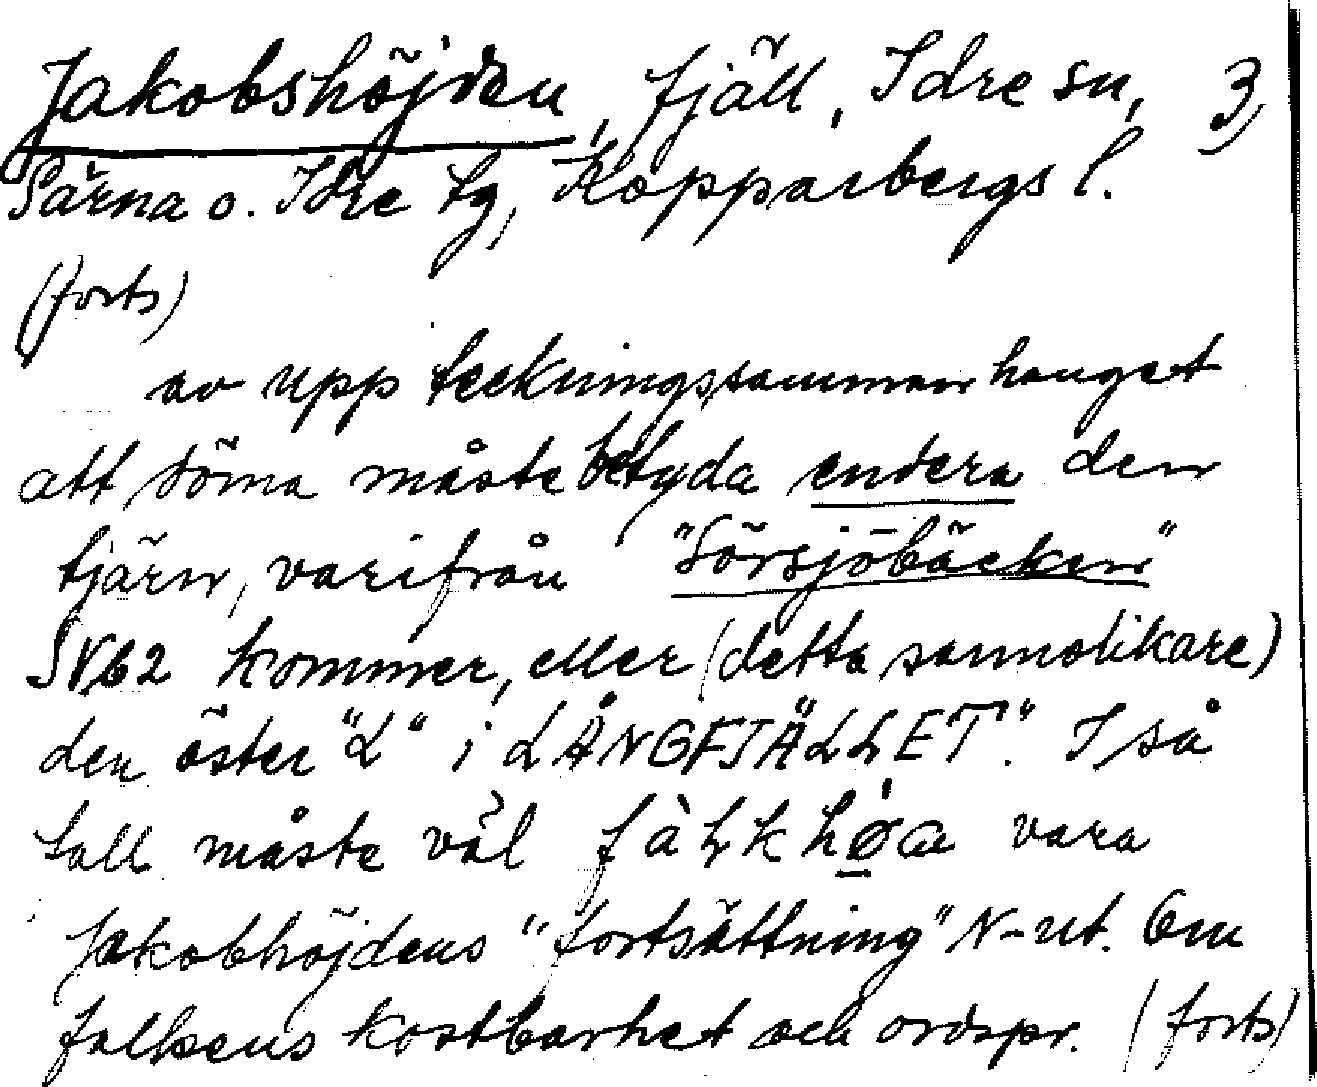 Jakobshöjden, fjäll, Idre sn, 3)
Särna o. Idre tg, Kopparbergs l.
(forts)
av uppteckningssammanhanget
att söma måste betyda endera den
tjärn, varifrån "Sörsjöbäcken"
SV62 kommer, eller (detta sannolikare)
den öster "L" i LÅNGFJÄLLET". I så
fall måste väl vara
Jakobhöjdens "fortsättning" N-ut. Om
falkens kostbarhet och ordspr. (forts)